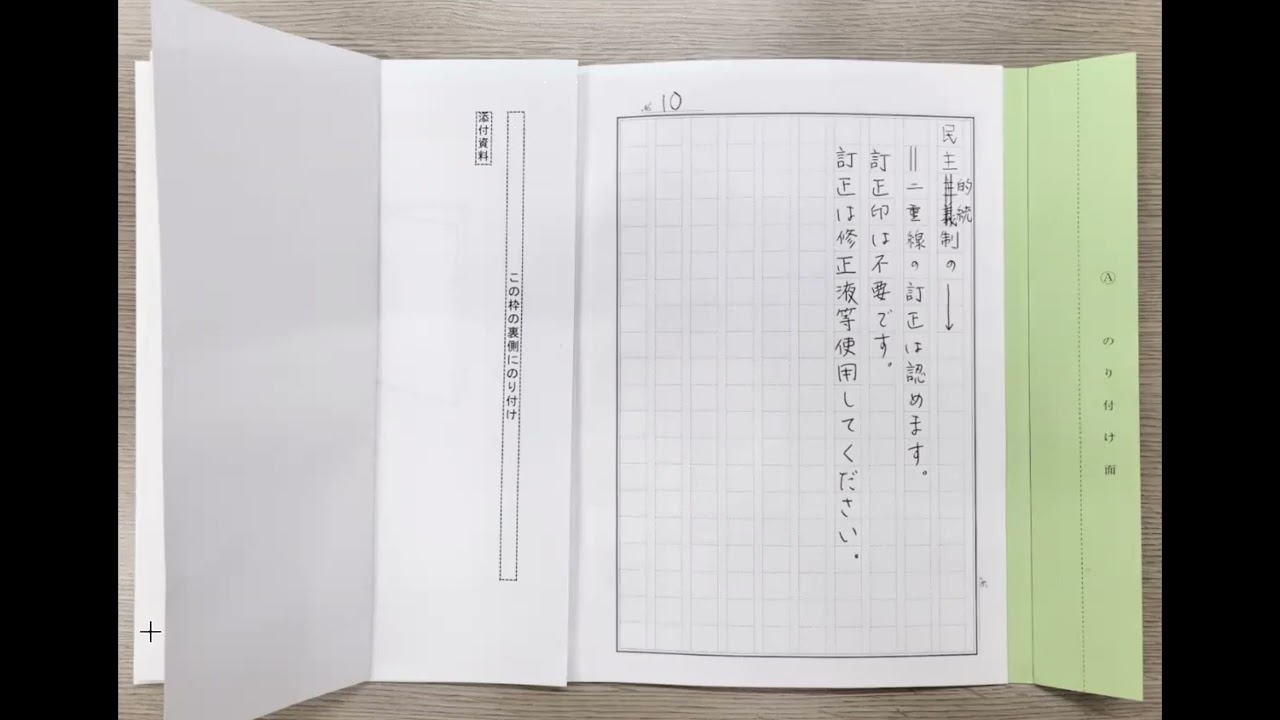 Ⓐ のり付け面
№ 10
民主主義制の
的統
＝二重線の訂正は認めます。
訂正印は不要です。
訂正は修正液等使用してください。
この枠の裏側にのり付け
添付資料